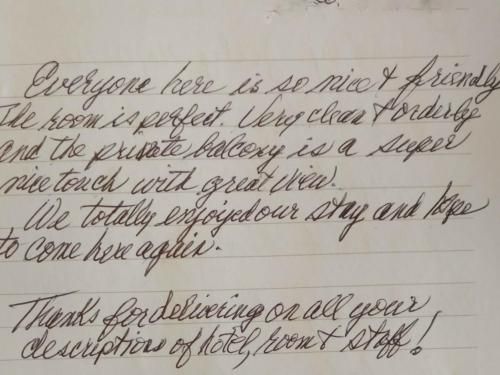 Everyone here is so nice & friendly
The room is perfect. Very clean & orderly
and the private balcony is a super
nice touch with great view.
We totally enjoyed our stay and hope
to come here again.
Thanks for delivering on all your
descriptions of hotel, room & staff!